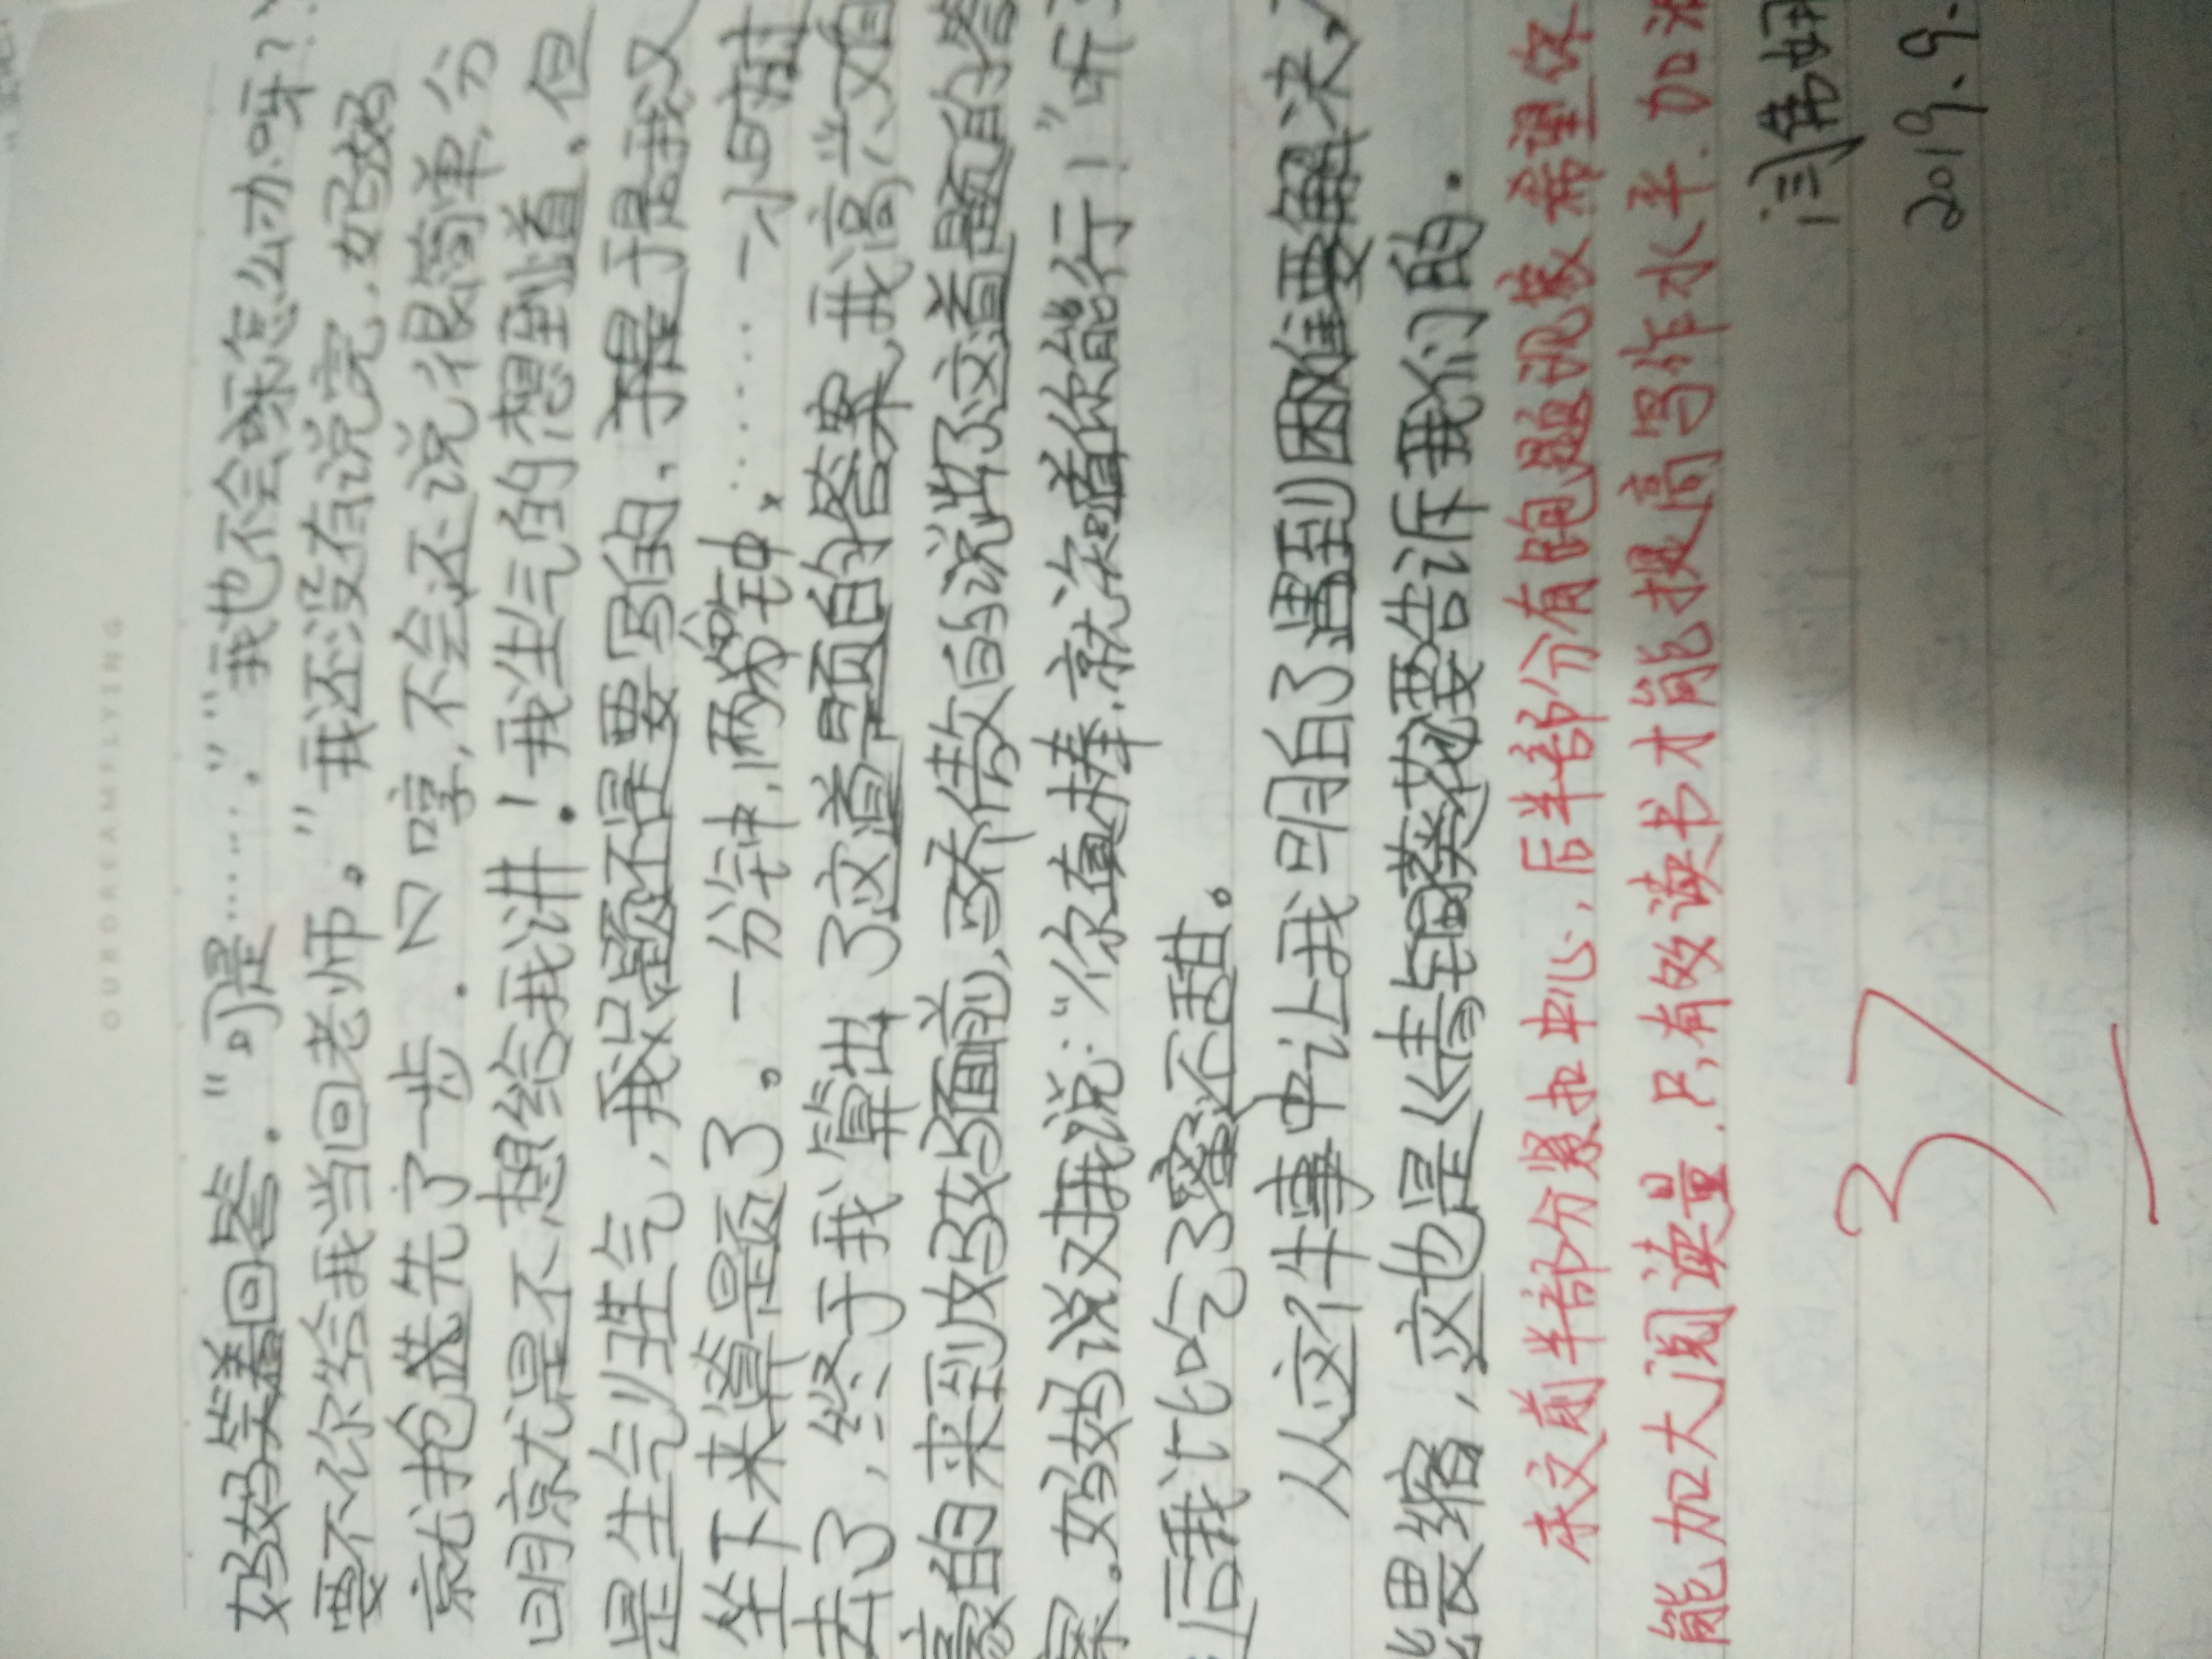 OURDREAMFLYING
妈妈笑着回答。"可是……""我也不会呀怎么办呀?
要不你给我当回老师。"我还没有说完,妈妈
就抢先了一步.口哼,不会还说很简单,分
明就是不想给我讲!我生气的想到道。但
是生气归生气,我题还是要写的,于是我又
坐下来算题了。一分钟,两分钟,……一小时
去了,终于我算出了这道题的答案,我高兴
豪的来到妈妈面前,骄傲的说出了这道题的答
案。妈妈说对我说:"你真棒,就知道你能行!"听
后我比吃了蜜还甜。
从这件事中让我明白了遇到困难要解决,
畏缩,这也是《青铜葵花》要告诉我们的.
本文前半部分紧扣中心,后半部分有跑题现象希望你
能加大阅读量.只有多读书才能提高写作水平.加油
闫
2019.9.
37